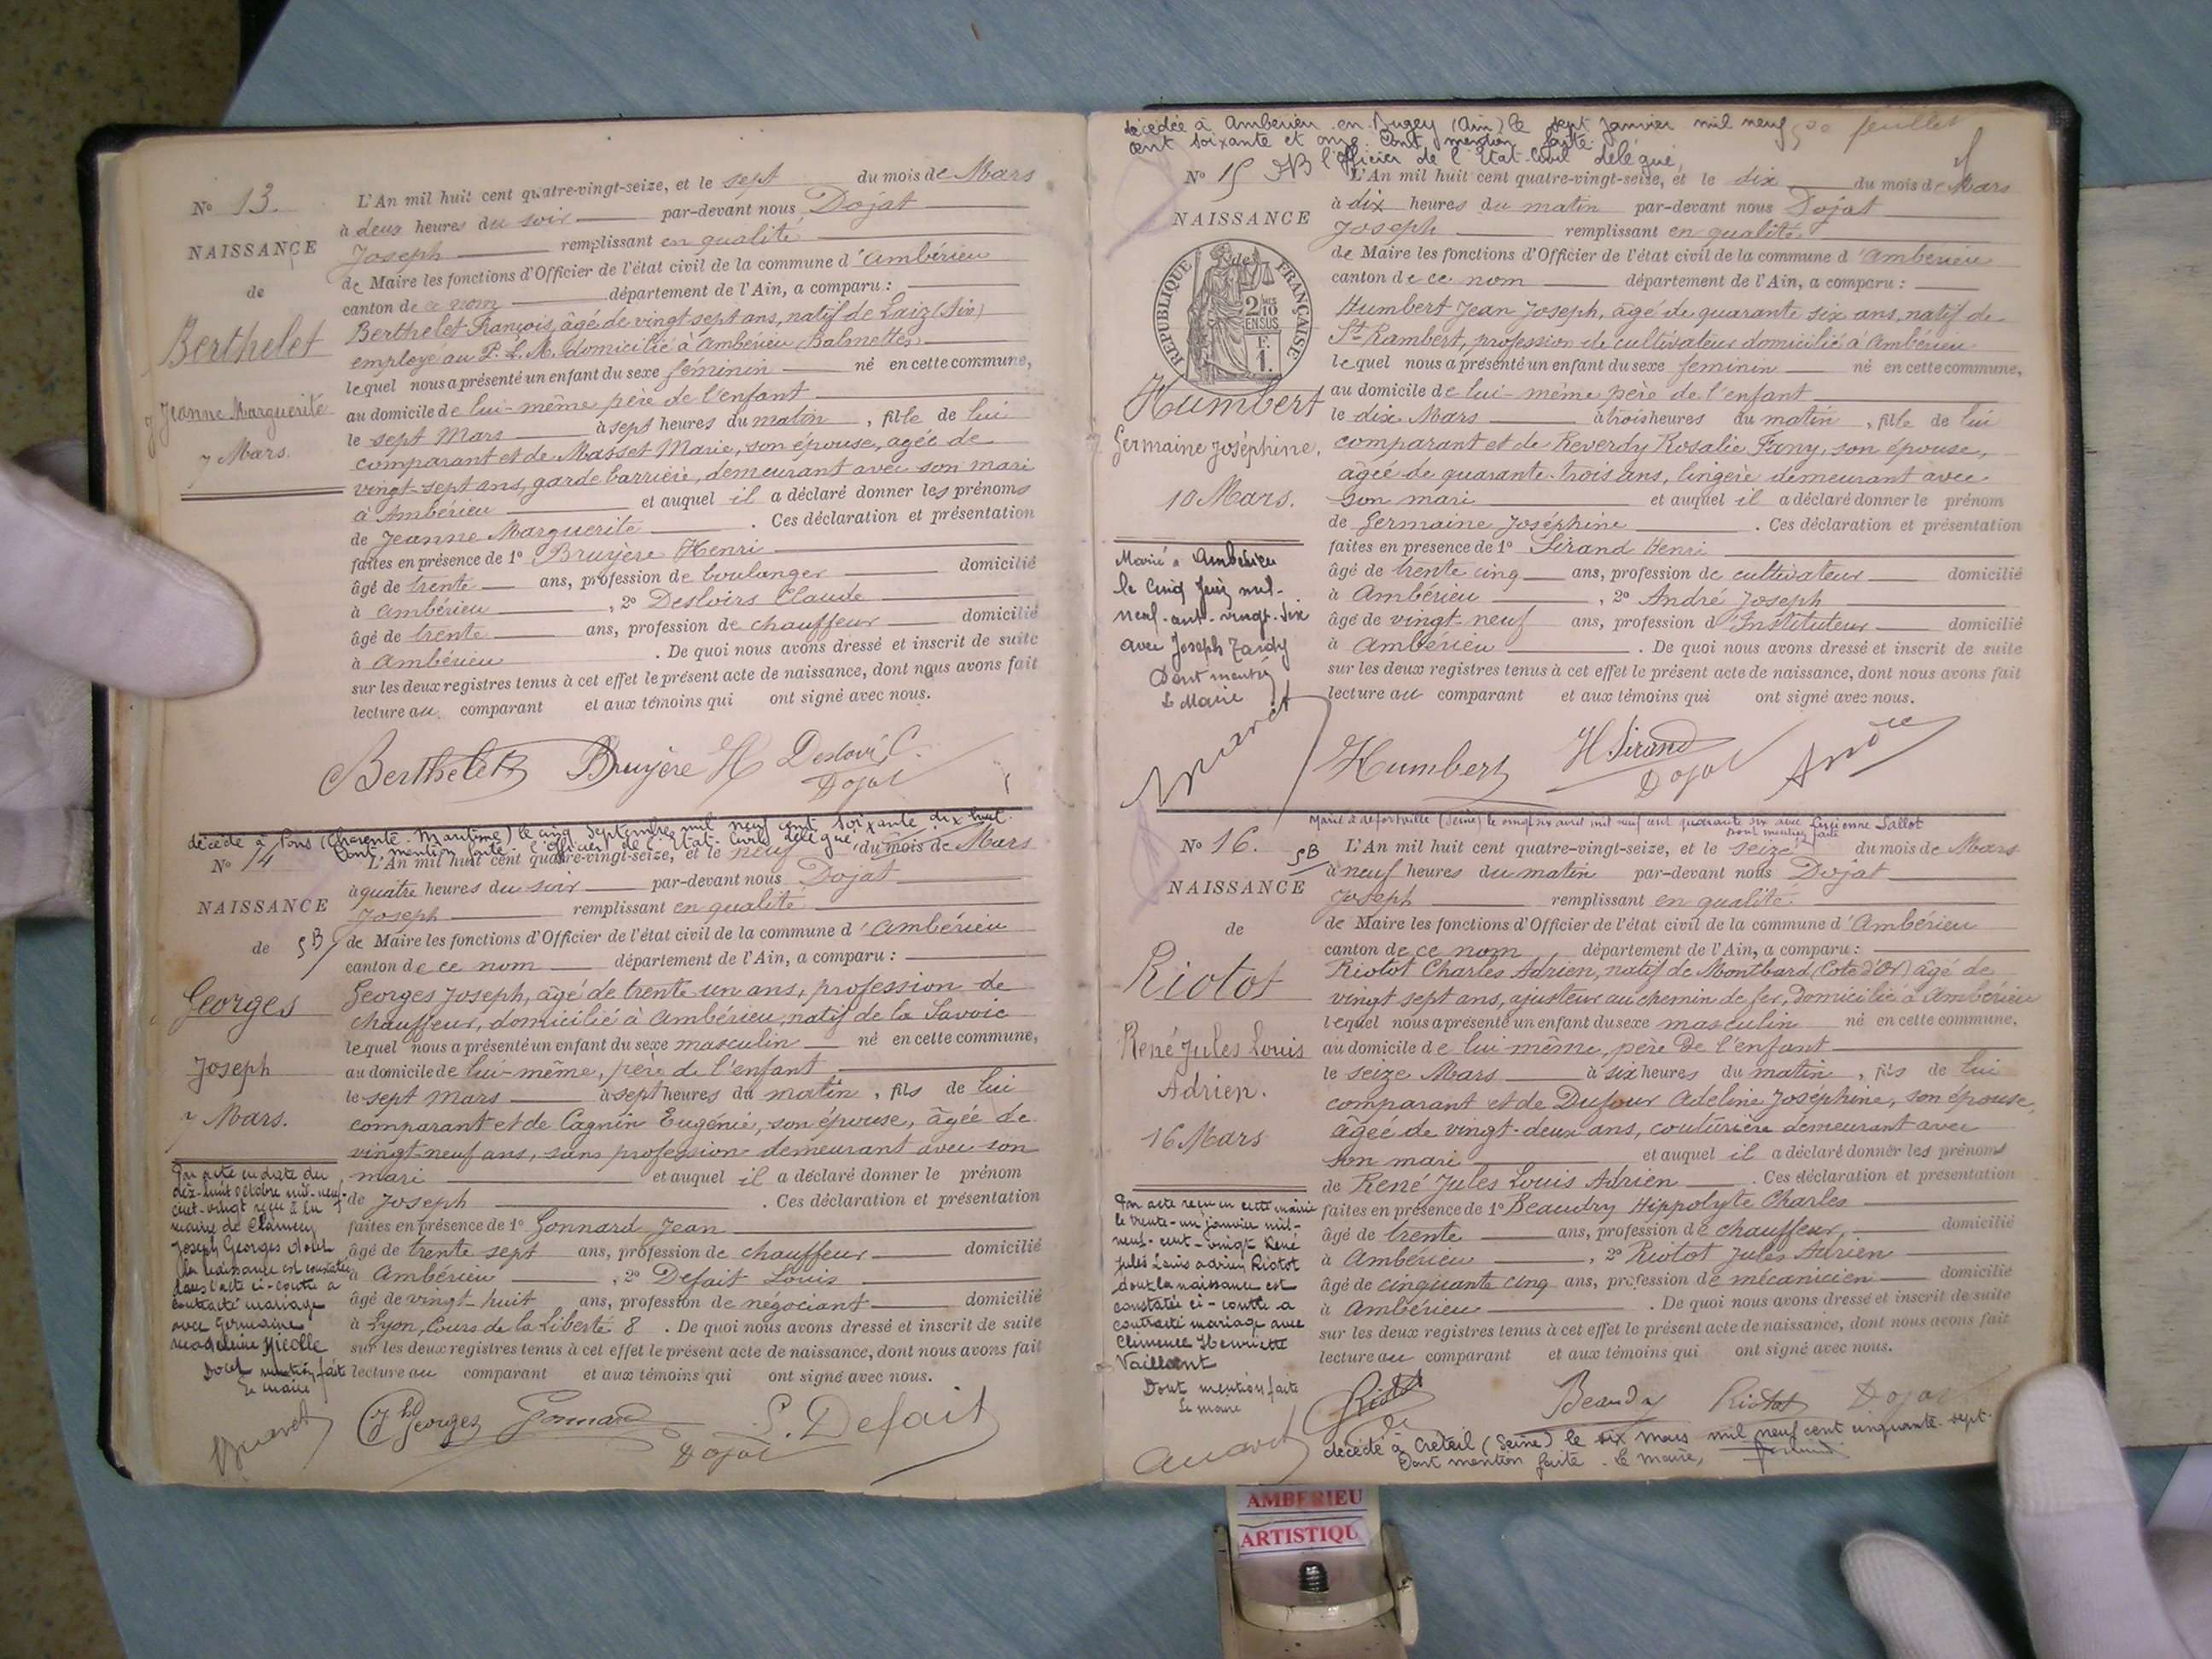 Nº 13.
NAISSANCE
de
Berthelet
Jeanne Marguerite
7 Mars.
L'An mil huit cent quatre-vingt-seize, et le sept du mois de Mars
à deux heures du soir par-devant nous Dojat
Joseph remplissant en qualité
de Maire les fonctions d'Officier de l'état civil de la commune d'Ambérieu
canton de ce nom département de l'Ain, a comparu :
Berthelet François, âgé de vingt-sept ans, natif de Laiz (Ain)
employé au P. L. M. domicilié à Ambérieu (Balmettes)
lequel nous a présenté un enfant du sexe féminin né en cette commune,
au domicile de lui-même père de l'enfant
le sept Mars à sept heures du matin, fille de lui
comparant et de Masset Marie, son épouse, agée de
vingt-sept ans, garde barrière, demeurant avec son mari
à Ambérieu et auquel il a déclaré donner les prénoms
de Jeanne Marguerite. Ces déclaration et présentation
faites en présence de 1º Bruyère Henri
âgé de trente ans, profession de boulanger domicilié
à Ambérieu, 2º Desloirs Claude
âgé de trente ans, profession de chauffeur domicilié
à Ambérieu. De quoi nous avons dressé et inscrit de suite
sur les deux registres tenus à cet effet le présent acte de naissance, dont nous avons fait
lecture au comparant et aux témoins qui ont signé avec nous.
Berthelet Bruyère H Desloirs C.
Dojat
décédé à Pons (Charente Maritime) le cinq Septembre mil neuf cent soixante dix huit.
Dont mention faite. l'Officier de l'Etat-Civil délégué,
Nº 14
NAISSANCE
de
Georges
Joseph
7 Mars.
L'An mil huit cent quatre-vingt-seize, et le neuf du mois de Mars
à quatre heures du soir par-devant nous Dojat
Joseph remplissant en qualité
de Maire les fonctions d'Officier de l'état civil de la commune d'Ambérieu
canton de ce nom département de l'Ain, a comparu :
Georges Joseph, âgé de trente-un ans, profession de
chauffeur, domicilié à Ambérieu, natif de la Savoie
lequel nous a présenté un enfant du sexe masculin né en cette commune,
au domicile de lui-même, père de l'enfant
le sept Mars à sept heures du matin, fils de lui
comparant et de Cagnin Eugénie, son épouse, âgée de
vingt-neuf ans, sans profession demeurant avec son
mari et auquel il a déclaré donner le prénom
de Joseph. Ces déclaration et présentation
faites en présence de 1º Gonnard Jean
âgé de trente sept ans, profession de chauffeur domicilié
à Ambérieu, 2º Defait Louis
âgé de vingt-huit ans, profession de négociant domicilié
à Lyon, Cours de la Liberté 8. De quoi nous avons dressé et inscrit de suite
sur les deux registres tenus à cet effet le présent acte de naissance, dont nous avons fait
lecture au comparant et aux témoins qui ont signé avec nous.
Par acte en date du
dix-huit octobre mil-neuf-
cent-vingt reçu à la
mairie de Clamecy
Joseph Georges dont
la naissance est constatée
dans l'acte ci-contre a
contracté mariage
avec Germaine
Magdeleine Nicolle
Dont mention faite
Le maire
Jh Georges Gonnard L. Defait
Dojat
décédée à Ambérieu en Bugey (Ain) le sept Janvier mil neuf
cent soixante et onze. Dont mention faite.
l'Officier de l'Etat-Civil délégué,
Nº 15
NAISSANCE
de
RÉPUBLIQUE FRANÇAISE
2/10 EN SUS
1 F.
Humbert
Germaine Joséphine.
10 Mars.
L'An mil huit cent quatre-vingt-seize, et le dix du mois de Mars
à dix heures du matin par-devant nous Dojat
Joseph remplissant en qualité
de Maire les fonctions d'Officier de l'état civil de la commune d'Ambérieu
canton de ce nom département de l'Ain, a comparu :
Humbert Jean Joseph, âgé de quarante six ans, natif de
St Rambert, profession de cultivateur domicilié à Ambérieu
lequel nous a présenté un enfant du sexe féminin né en cette commune,
au domicile de lui-même père de l'enfant
le dix Mars à trois heures du matin, fille de lui
comparant et de Reverdy Rosalie Fany, son épouse,
âgée de quarante-trois ans, lingère demeurant avec
son mari et auquel il a déclaré donner le prénom
de Germaine Joséphine. Ces déclaration et présentation
faites en présence de 1º Sirand Henri
âgé de trente cinq ans, profession de cultivateur domicilié
à Ambérieu, 2º André Joseph
âgé de vingt-neuf ans, profession d'Instituteur domicilié
à Ambérieu. De quoi nous avons dressé et inscrit de suite
sur les deux registres tenus à cet effet le présent acte de naissance, dont nous avons fait
lecture au comparant et aux témoins qui ont signé avec nous.
Marié à Ambérieu
le Cinq Juin mil-
neuf-cent-vingt-six
avec Joseph Tardy
Dont mention
Le Maire
Humbert H Sirand André
Dojat
Marié à Alfortville (Seine) le vingt six avril mil neuf cent quarante six avec Lucienne Sallot
Dont mention faite
Nº 16.
NAISSANCE
de
Riotot
René Jules Louis
Adrien.
16 Mars
L'An mil huit cent quatre-vingt-seize, et le seize du mois de Mars
à neuf heures du matin par-devant nous Dojat
Joseph remplissant en qualité
de Maire les fonctions d'Officier de l'état civil de la commune d'Ambérieu
canton de ce nom, département de l'Ain, a comparu :
Riotot Charles Adrien, natif de Montbard (Côte d'Or) âgé de
vingt sept ans, ajusteur au chemin de fer, domicilié à Ambérieu
lequel nous a présenté un enfant du sexe masculin né en cette commune,
au domicile de lui même, père de l'enfant
le seize Mars à six heures du matin, fils de lui
comparant et de Dufour Adeline Joséphine, son épouse,
âgée de vingt-deux ans, couturière demeurant avec
son mari et auquel il a déclaré donner les prénoms
de René Jules Louis Adrien. Ces déclaration et présentation
faites en présence de 1º Beaudry Hippolyte Charles
âgé de trente ans, profession de chauffeur, domicilié
à Ambérieu, 2º Riotot Jules Adrien
âgé de cinquante cinq ans, profession de mécanicien domicilié
à Ambérieu. De quoi nous avons dressé et inscrit de suite
sur les deux registres tenus à cet effet le présent acte de naissance, dont nous avons fait
lecture au comparant et aux témoins qui ont signé avec nous.
Par acte reçu en cette mairie
le trente-un janvier mil-
neuf-cent-vingt René
Jules Louis Adrien Riotot
dont la naissance est
constatée ci-contre a
contracté mariage avec
Clémence Henriette
Vaillant
Dont mention faite
Le maire
Riotot Beaudry Riotot Dojat
décédé à Créteil (Seine) le six mars mil neuf cent cinquante-sept.
Dont mention faite. Le maire,
AMBERIEU
ARTISTIQU